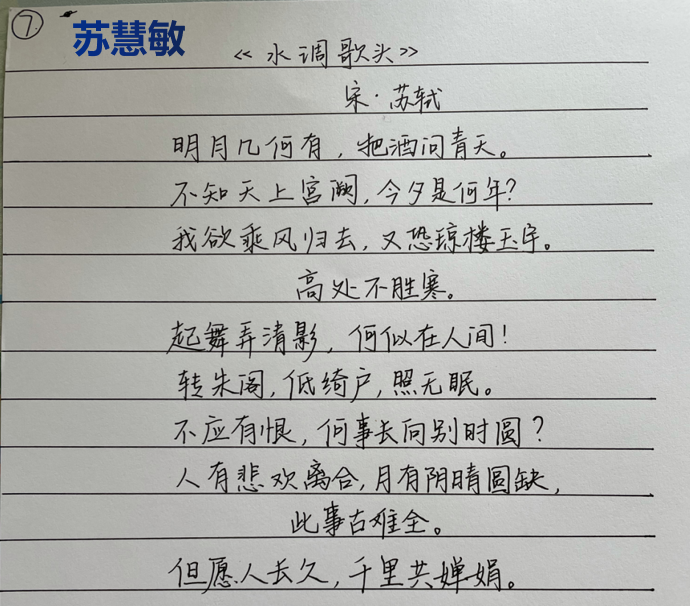 ⑦ 苏慧敏
《水调歌头》
宋·苏轼
明月几何有，把酒问青天。
不知天上宫阙，今夕是何年？
我欲乘风归去，又恐琼楼玉宇。
高处不胜寒。
起舞弄清影，何似在人间！
转朱阁，低绮户，照无眠。
不应有恨，何事长向别时圆？
人有悲欢离合，月有阴晴圆缺，
此事古难全。
但愿人长久，千里共婵娟。